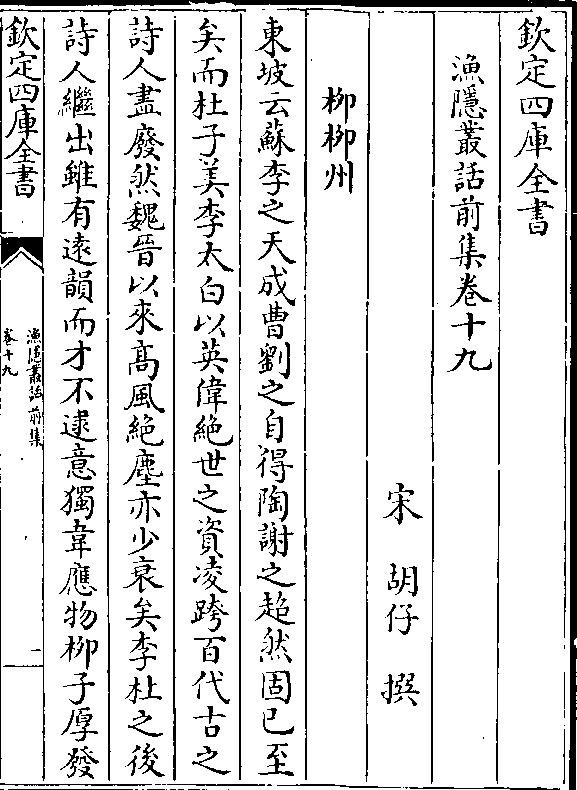 欽定四庫全書
漁隱叢話前集卷十九
宋 胡仔 撰
柳柳州
東坡云蘇李之天成曹劉之自得陶謝之超然固已至
矣而杜子美李太白以英偉絶世之資凌跨百代古之
詩人盡廢然魏晉以來髙風絶塵亦少衰矣李杜之後
詩人繼出雖有逺韻而才不逮意獨韋應物柳子厚發
欽定四庫全書
漁隱叢話前集
卷十九
一